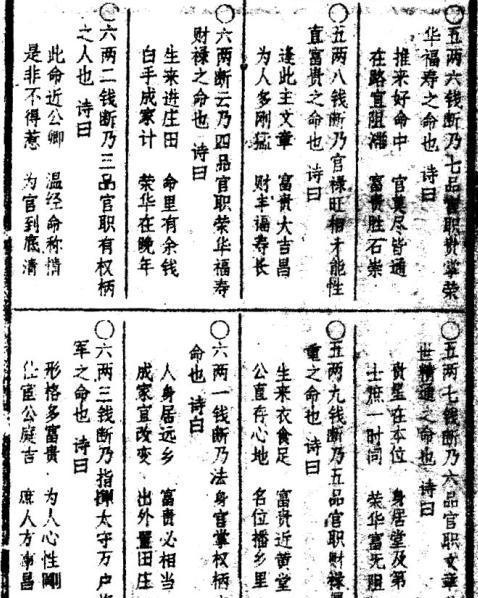 〇五两六钱断乃七品官职贵掌荣
华福寿之命也 诗曰
推来好命中 官莫尽皆通
在路宜阻滞 富贵胜石崇
〇五两八钱断乃官禄旺相才能性
直富贵之命也 诗曰
逢此主文章 富贵大吉昌
为人多刚猛 财丰福寿长
〇六两断云乃四品官职荣华福寿
财禄之命也 诗曰
生来进庄田 命里有余钱
白手成家计 荣华在晚年
〇六两二钱断乃三品官职有权柄
之人也 诗曰
此命近公卿 温经命称情
是非不得惹 为官到底清
〇五两七钱断乃六品官职文章
世精通之命也 诗曰
贵星在本位 身居堂及第
士庶一时同 荣华富无阻
〇五两九钱断乃五品官职财禄
重之命也 诗曰
生来衣食足 富贵近黄堂
公直存心地 名位播乡里
〇六两一钱断乃法身官掌权柄
命也 诗曰
人身居远乡 富贵必相当
成家宜改变 出外置田庄
〇六两三钱断乃指挥太守万户
军之命也 诗曰
形格多富贵 为人心性刚
仕宦公庭吉 庶人方事昌